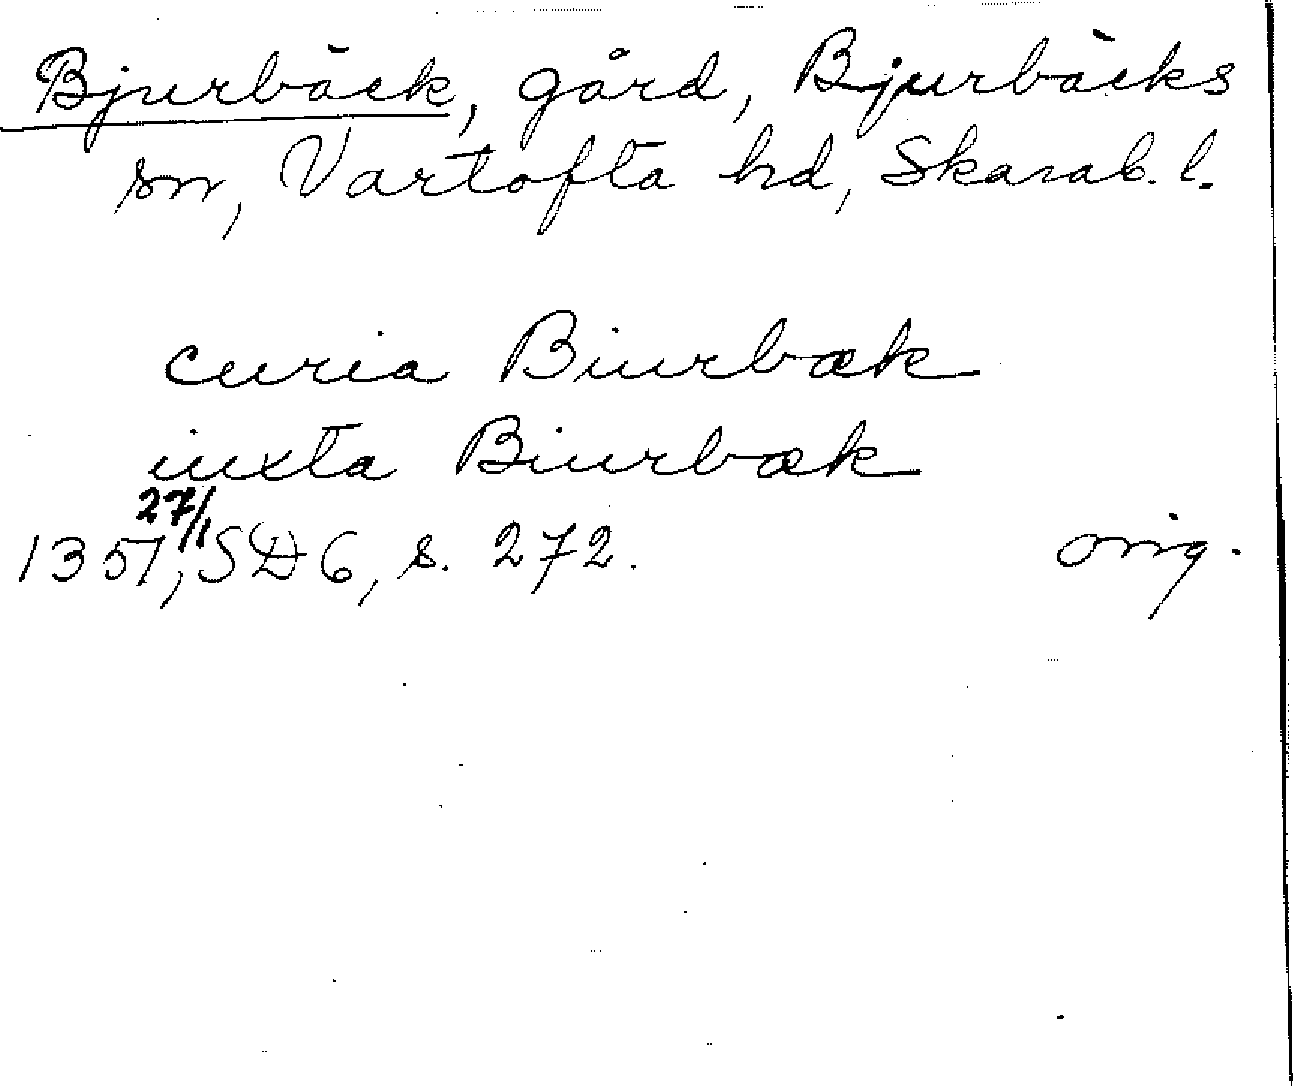 Bjurbäck, gård, Bjurbäcks
sn, Vartofta hd, Skarab. l.
curia Biurbæk
iuxta Biurbæk
27/1
1351, SD 6, s. 272. orig.